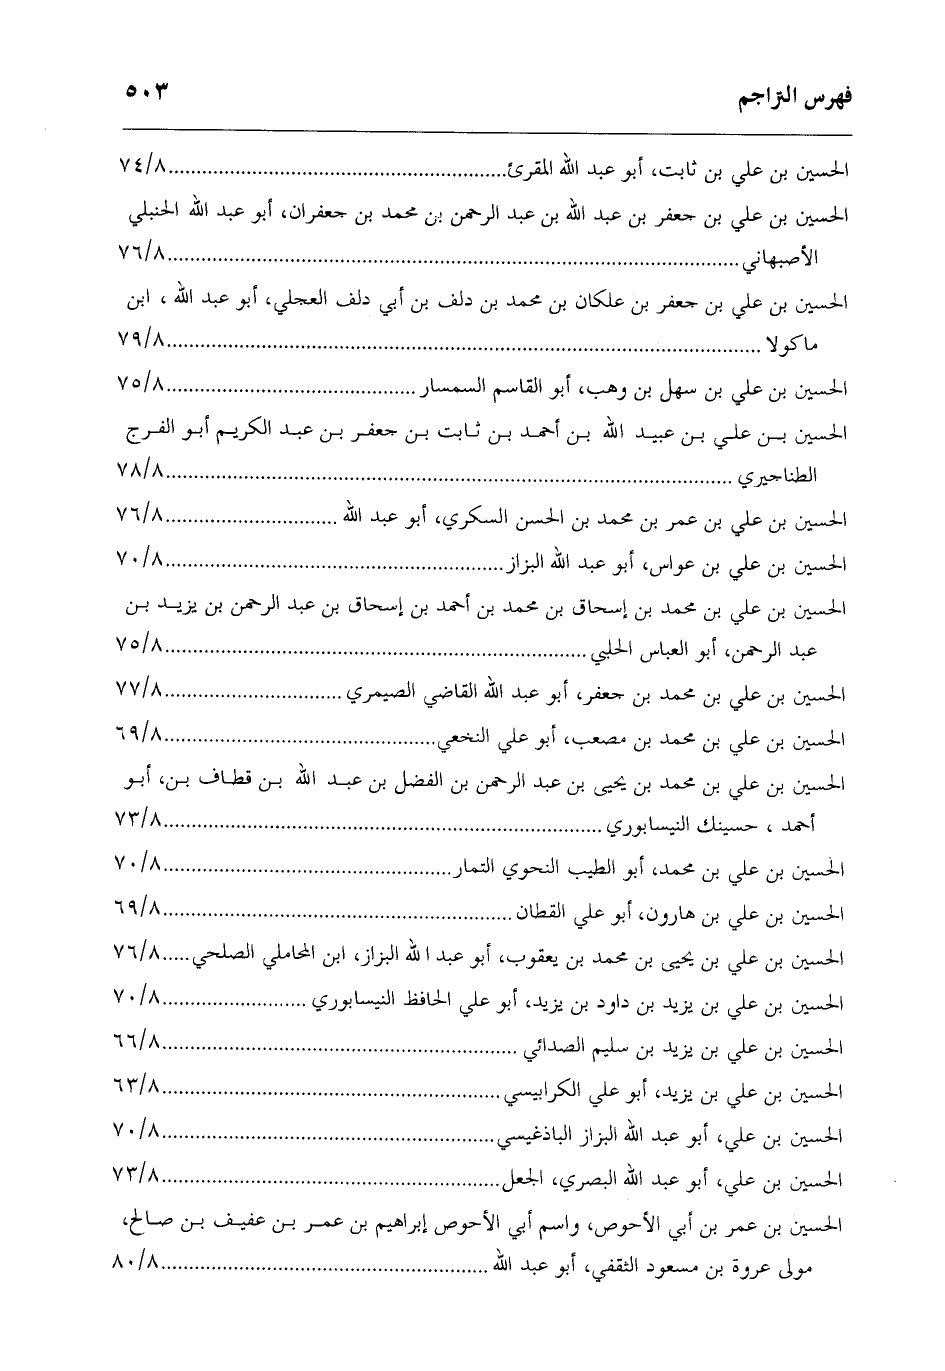 فهرس التراجم ٥٠٣
الحسين بن علي بن ثابت، أبو عبد الله المقرئ.........................................................٧٤/٨
الحسين بن علي بن جعفر بن عبد الله بن عبد الرحمن بن محمد بن جعفران، أبو عبد الله الحنبلي
الأصبهاني.........................................................٧٦/٨
الحسين بن علي بن جعفر بن علكان بن محمد بن دلف بن أبي دلف العجلي، أبو عبد الله ، ابن
ماكولا.........................................................٧٩/٨
الحسين بن علي بن سهل بن وهب، أبو القاسم السمسار.........................................................٧٥/٨
الحسين بن علي بن عبيد الله بن أحمد بن ثابت بن جعفر بن عبد الكريم أبو الفرج
الطناجيري.........................................................٧٨/٨
الحسين بن علي بن عمر بن محمد بن الحسن السكري، أبو عبد الله.........................................................٧٦/٨
الحسين بن علي بن عواس، أبو عبد الله البزاز.........................................................٧٠/٨
الحسين بن علي بن محمد بن إسحاق بن محمد بن أحمد بن إسحاق بن عبد الرحمن بن يزيد بن
عبد الرحمن، أبو العباس الحلبي.........................................................٧٥/٨
الحسين بن علي بن محمد بن جعفر، أبو عبد الله القاضي الصيمري.........................................................٧٧/٨
الحسين بن علي بن محمد بن مصعب، أبو علي النخعي.........................................................٦٩/٨
الحسين بن علي بن محمد بن يحيى بن عبد الرحمن بن الفضل بن عبد الله بن قطاف بن، أبو
أحمد ، حسينك النيسابوري.........................................................٧٣/٨
الحسين بن علي بن محمد، أبو الطيب النحوي التمار.........................................................٧٠/٨
الحسين بن علي بن هارون، أبو علي القطان.........................................................٦٩/٨
الحسين بن علي بن يحيى بن محمد بن يعقوب، أبو عبد الله البزاز، ابن المحاملي الصلحي.....٧٦/٨
الحسين بن علي بن يزيد بن داود بن يزيد، أبو علي الحافظ النيسابوري.........................................................٧٠/٨
الحسين بن علي بن يزيد بن سليم الصدائي.........................................................٦٦/٨
الحسين بن علي بن يزيد، أبو علي الكرابيسي.........................................................٦٣/٨
الحسين بن علي، أبو عبد الله البزاز الباذغيسي.........................................................٧٠/٨
الحسين بن علي، أبو عبد الله البصري، الجعل.........................................................٧٣/٨
الحسين بن عمر بن أبي الأحوص، واسم أبي الأحوص إبراهيم بن عمر بن عفيف بن صالح،
مولى عروة بن مسعود الثقفي، أبو عبد الله.........................................................٨٠/٨